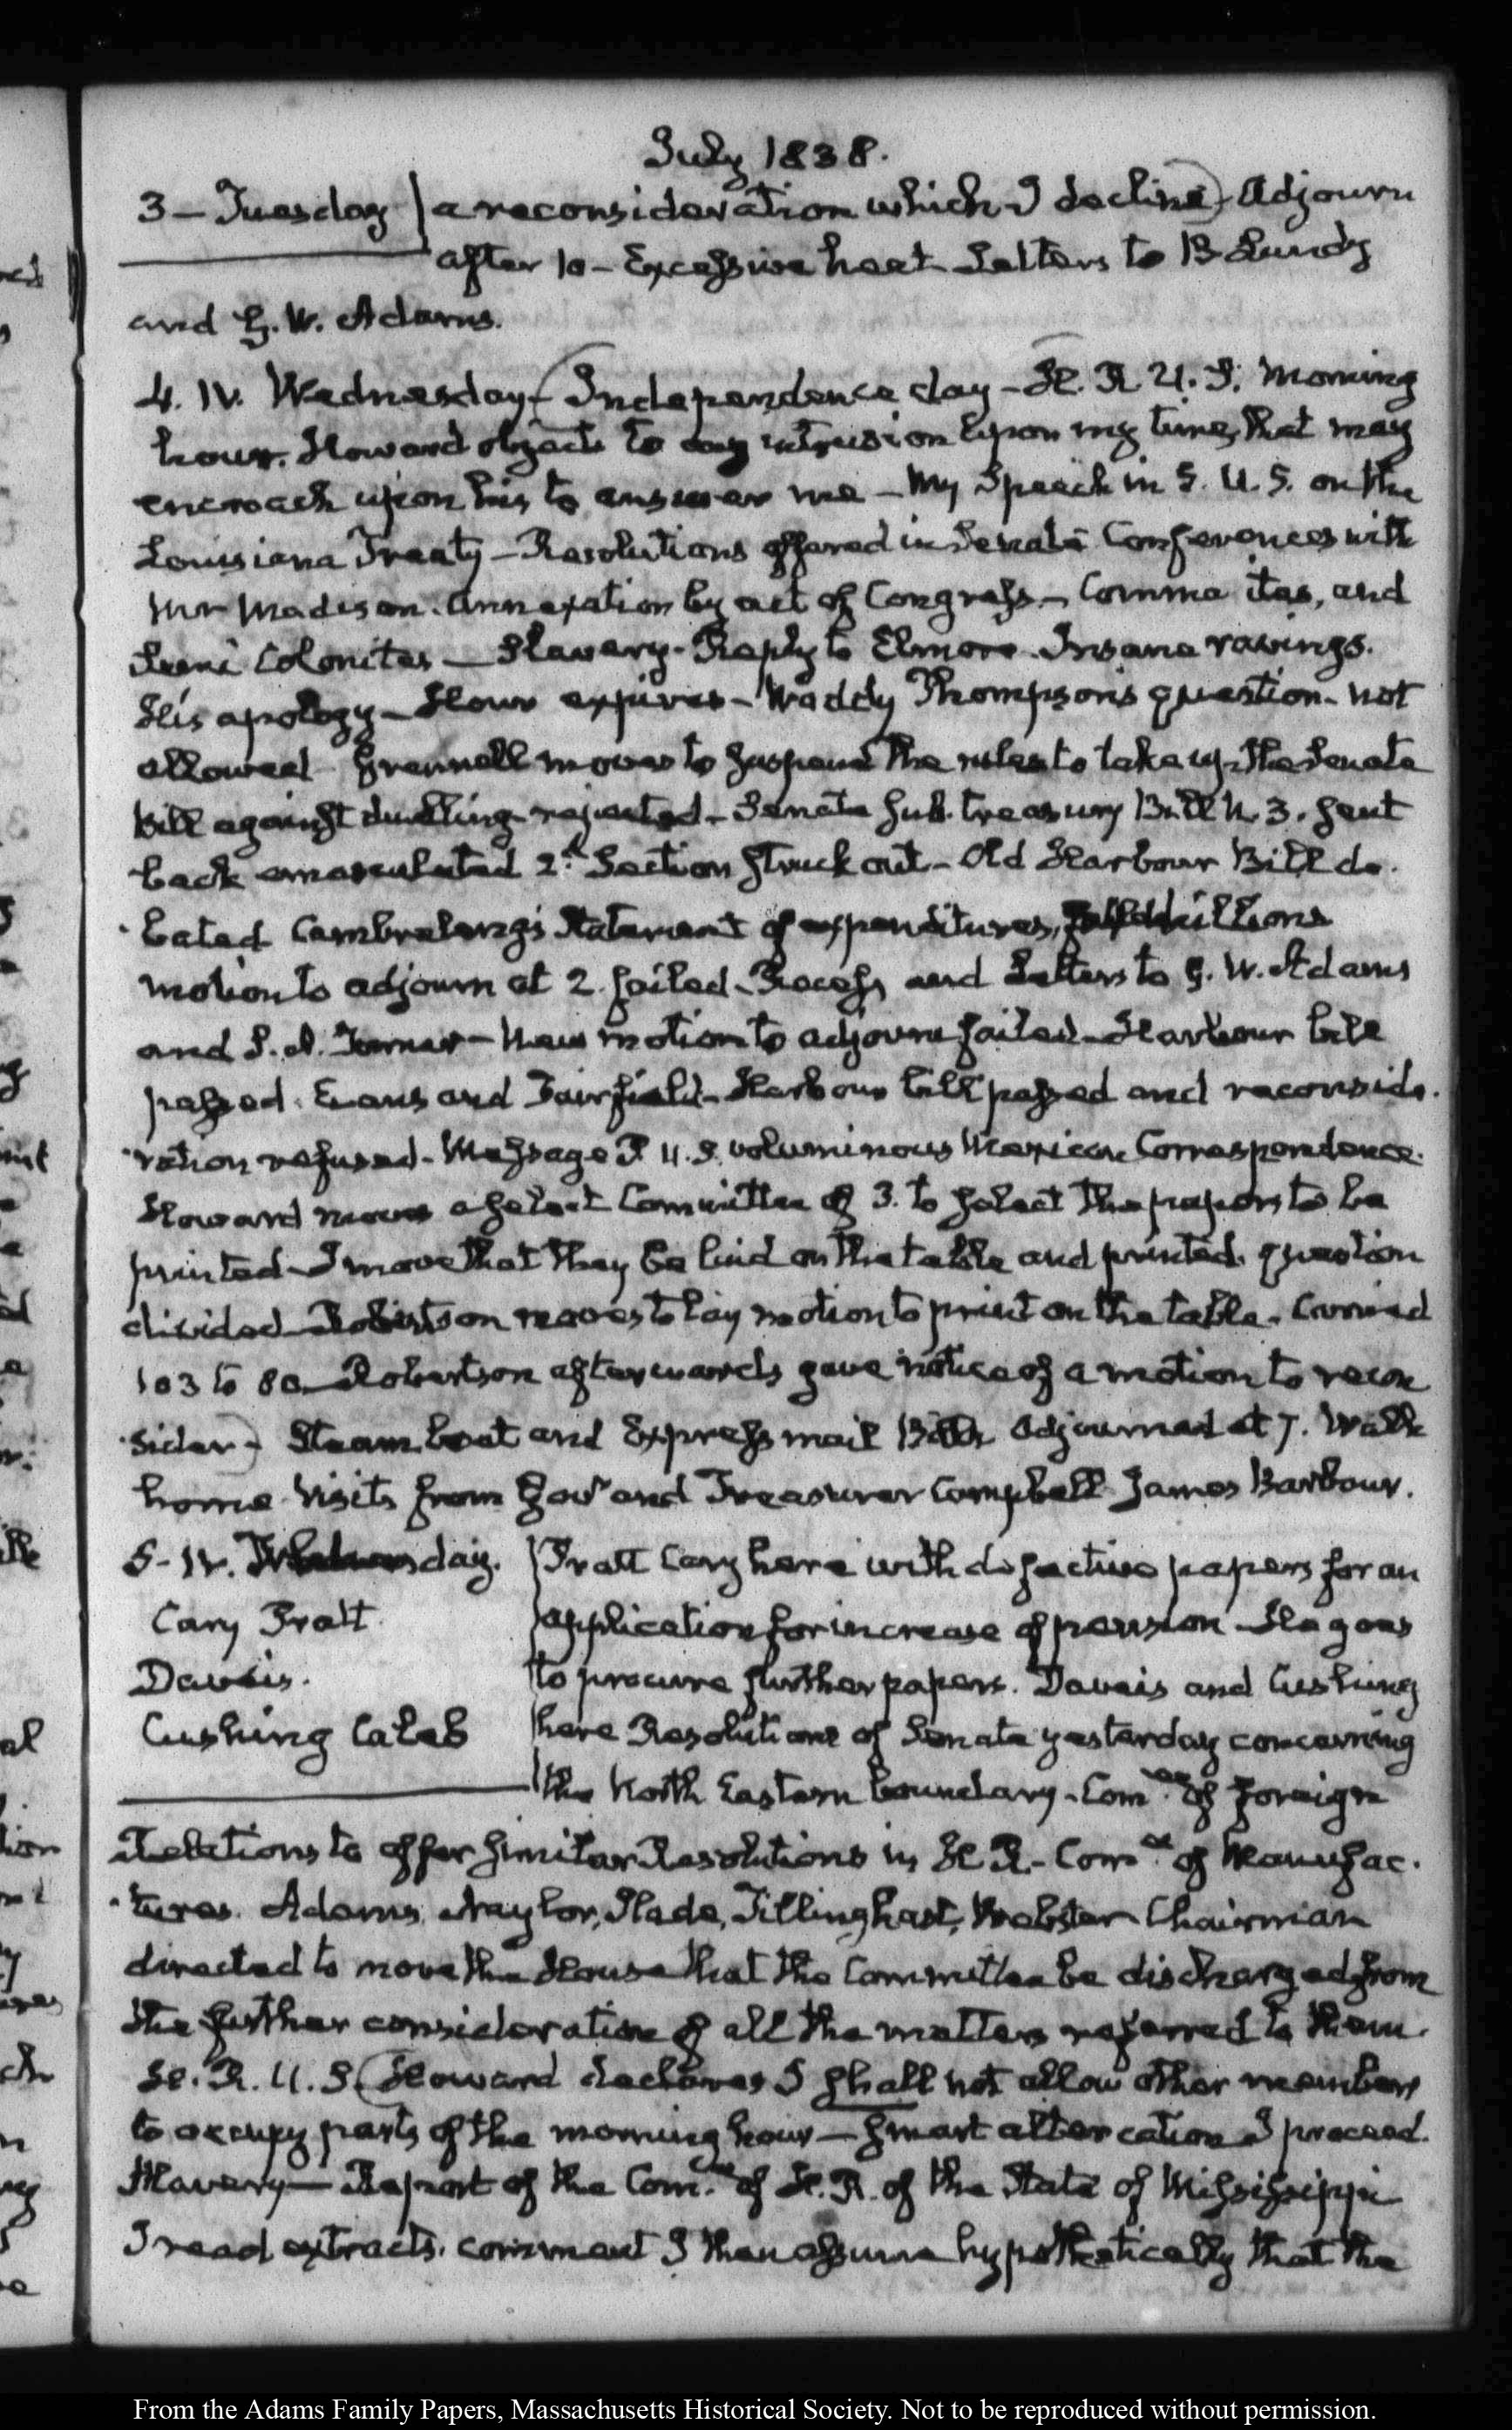 July 1838.
3 – Tuesday } a reconsideration which I decline) Adjourn
after 10 – Excessive heat – Letters to B Lundy
and G. W. Adams.
4. IV. Wednesday – (Independence day – H. R. U. S. Morning
hour. Howard objects to any intrusion upon my time, that may
encroach upon his to answer me – My Speech in S. U. S. on the
Louisiana Treaty – Resolutions offered in Senate Conferences with
Mr Madison. Annexation by act of Congress – and
– Slavery – Reply to Elmore. Insane ravings.
His apology – Hour expires – Waddy Thompson's question – not
allowed – Grennell moves to suspend the rules to take up the Senate
Bill against duelling – rejected – Senate Sub. treasury Bill N. 3. sent
back emasculated 2d. Section struck out – Old Harbour Bill de-
bated Cambreleng's Statement of expenditures,
motion to adjourn at 2. failed – Recess and Letters to G. W. Adams
and – New motion to adjourn failed – Harbour bill
passed. Evans and Fairfield – Harbour bill passed and reconside-
ration refused – Message P. U. S. voluminous Mexican Correspondence.
Howard moves a select Committee of 3. to select the papers to be
printed – I move that they be laid on the table and printed. question
divided – Robertson moves to lay motion to print on the table – Carried
103 to 80 – Robertson afterwards gave notice of a motion to recon
sider –) Steam boat and Express mail Bills Adjourned at 7. Walk
home – Visits from Govr and Treasurer Campbell – James Barbour.
5 – IV. Thursday. } Pratt Cary here with defective papers for an
Cary Pratt application for increase of pension – He goes
Daveis. to procure further papers. Daveis and Cushing
Cushing Caleb here Resolutions of Senate yesterday concerning
the North Eastern boundary – Comee. of Foreign
Relations to offer similar Resolutions in H. R. – Comee. of Manufac-
tures. Adams, Naylor, Slade, Tillinghast, Webster – Chairman
directed to move the House that the Committee be discharged from
the further consideration of all the matters referred to them.
H. R. U. S. (Howard declares I shall not allow other members
to occupy parts of the morning hour – smart altercation I proceed.
Slavery – Report of the Comee. of H. R. of the State of Mississippi
I read extracts. comment I then assume hypothetically that the
From the Adams Family Papers, Massachusetts Historical Society. Not to be reproduced without permission.